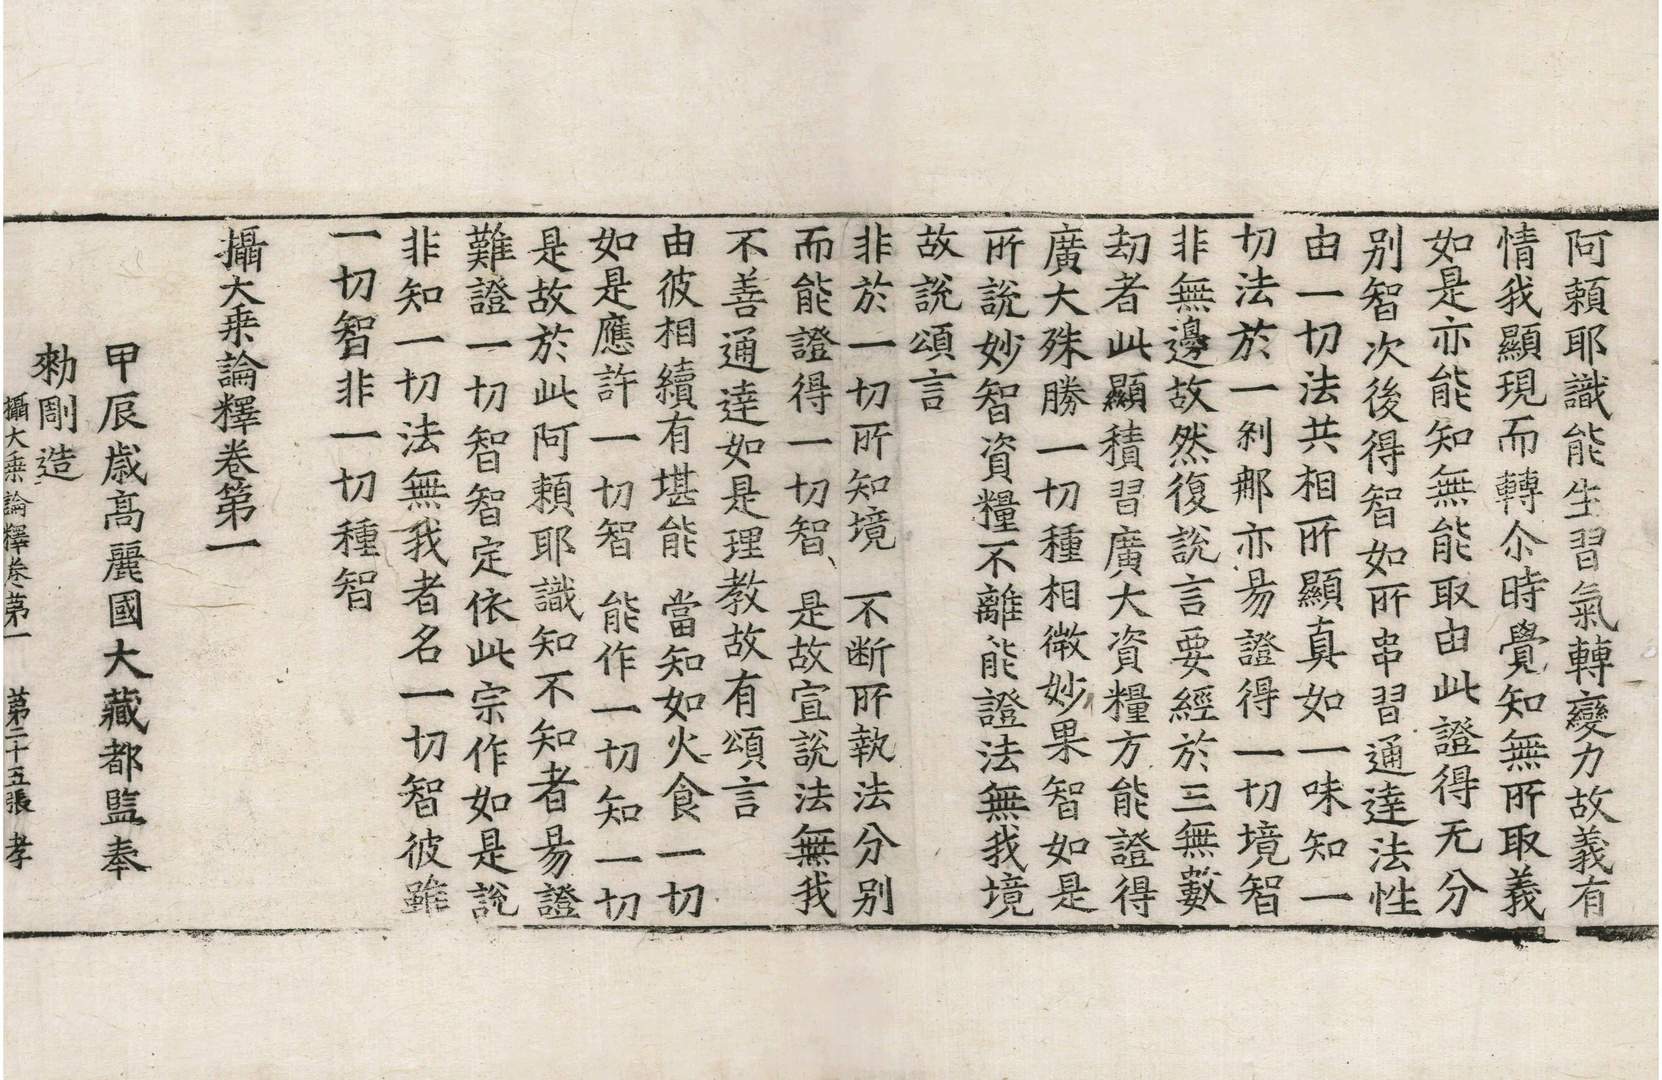 阿賴耶識能生習氣轉變力故義有
情我顯現而轉尒時覺知無所取義
如是亦能知無能取由此證得无分
別智次後得智如所串習通達法性
由一切法共相所顯真如一味知一
切法於一剎那亦昜證得一切境智
非無邊故然復說言要經於三無數
劫者此顯積習廣大資糧方能證得
廣大殊勝一切種相微妙果智如是
所說妙智資糧不離能證法無我境
故說頌言
非於一切所知境 不斷所執法分別
而能證得一切智 是故宣說法無我
不善通達如是理教故有頌言
由彼相續有堪能 當知如火食一切
如是應許一切智 能作一切知一切
是故於此阿賴耶識知不知者昜證
難證一切智智定依此宗作如是說
非知一切法無我者名一切智彼雖
一切智非一切種智
攝大乗論釋卷第一
甲辰歲高麗國大藏都監奉
勑彫造
攝大乗論釋卷第一 第二十五張 孝